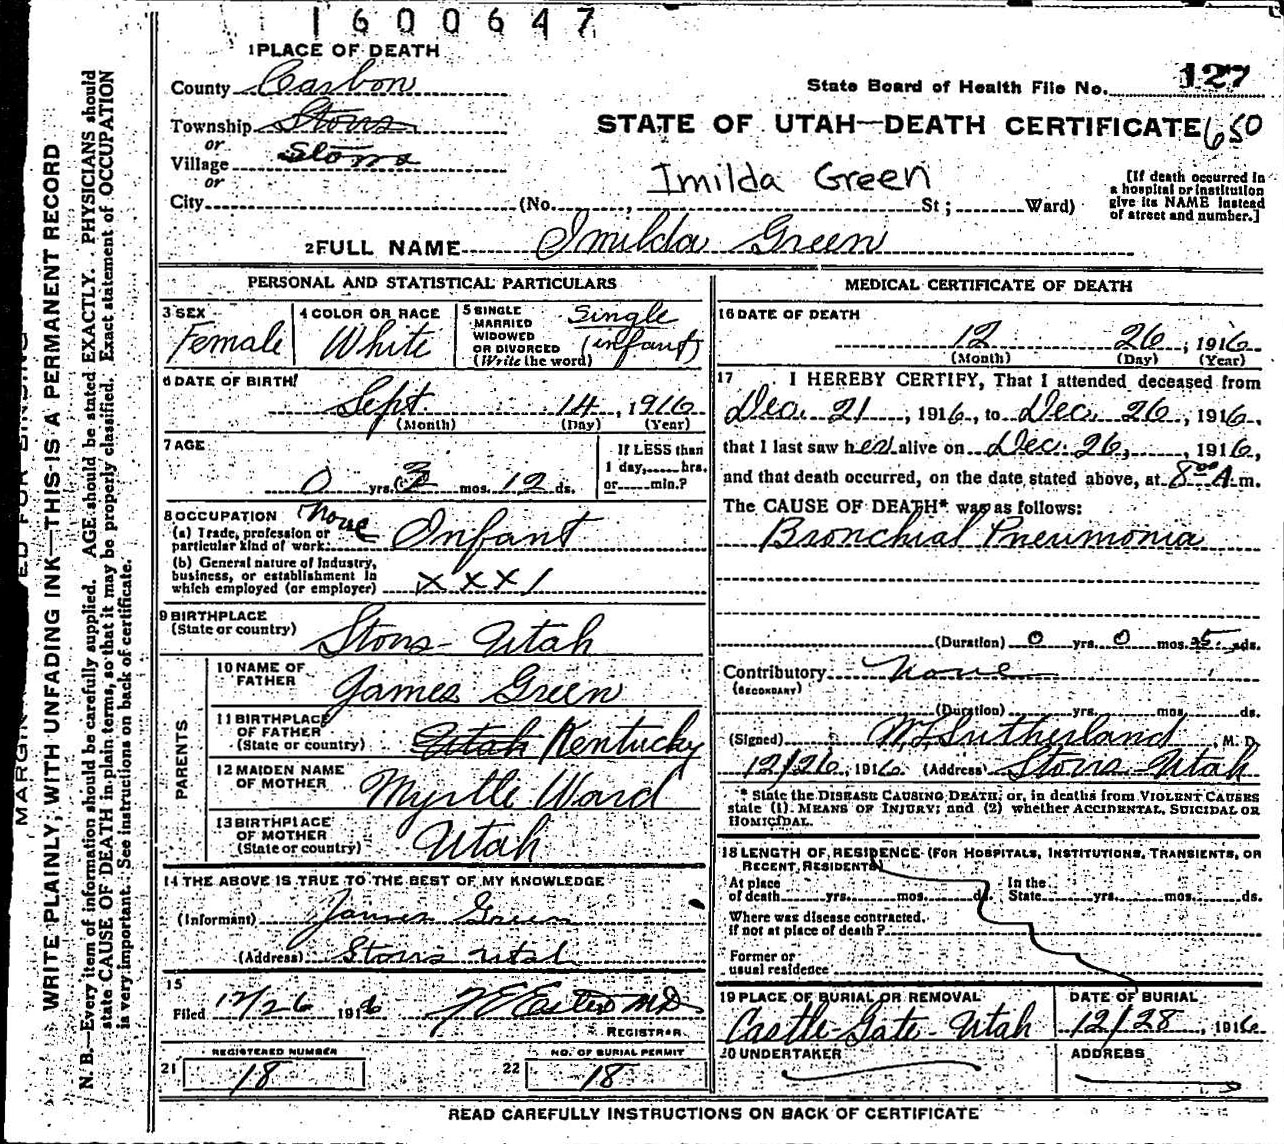 1600647
1 PLACE OF DEATH
County Carbon
State Board of Health File No. 127
Township Storrs
or
STATE OF UTAH—DEATH CERTIFICATE 650
Village Storrs
or
Imilda Green
[If death occurred in
a hospital or institution
give its NAME instead
of street and number.]
City (No. , St ; Ward)
2 FULL NAME Imilda Green
PERSONAL AND STATISTICAL PARTICULARS
3 SEX
Female
4 COLOR OR RACE
White
5 SINGLE
MARRIED
WIDOWED
OR DIVORCED
(Write the word)
Single
(infant)
6 DATE OF BIRTH
Sept. 14, 1916
(Month) (Day) (Year)
7 AGE
0 yrs. 3 mos. 12 ds.
If LESS than
1 day, hrs.
or min.?
8 OCCUPATION None
(a) Trade, profession or
particular kind of work Infant
(b) General nature of Industry,
business, or establishment in
which employed (or employer) XXX /
9 BIRTHPLACE
(State or country) Storrs Utah
PARENTS
10 NAME OF
FATHER James Green
11 BIRTHPLACE
OF FATHER
(State or country) Utah Kentucky
12 MAIDEN NAME
OF MOTHER Myrtle Ward
13 BIRTHPLACE
OF MOTHER
(State or country) Utah
14 THE ABOVE IS TRUE TO THE BEST OF MY KNOWLEDGE
(Informant) James Green
(Address) Storrs Utah
15
Filed 12/26 1916
REGISTRAR
REGISTERED NUMBER
21 18
NO. OF BURIAL PERMIT
22 18
MEDICAL CERTIFICATE OF DEATH
16 DATE OF DEATH
12 26, 1916
(Month) (Day) (Year)
17 I HEREBY CERTIFY, That I attended deceased from
Dec. 21, 1916, to Dec. 26, 1916,
that I last saw her alive on Dec. 26, 1916,
and that death occurred, on the date stated above, at 8 00 A.m.
The CAUSE OF DEATH* was as follows:
Bronchial Pneumonia
(Duration) 0 yrs. 0 mos. 5 ds.
Contributory None
(SECONDARY)
(Duration) yrs. mos. ds.
(Signed) Sutherland, M. D.
12/26, 1916. (Address) Storrs Utah
* State the DISEASE CAUSING DEATH; or, in deaths from VIOLENT CAUSES
state (1) MEANS OF INJURY; and (2) whether ACCIDENTAL, SUICIDAL OR
HOMICIDAL.
18 LENGTH OF RESIDENCE (FOR HOSPITALS, INSTITUTIONS, TRANSIENTS, OR
RECENT RESIDENTS)
At place
of death yrs. mos. d.
In the
State yrs. mos. ds.
Where was disease contracted,
if not at place of death?
Former or
usual residence
19 PLACE OF BURIAL OR REMOVAL
Castle Gate Utah
DATE OF BURIAL
12/28, 1916
20 UNDERTAKER
ADDRESS
READ CAREFULLY INSTRUCTIONS ON BACK OF CERTIFICATE
WRITE PLAINLY, WITH UNFADING INK—THIS IS A PERMANENT RECORD
N. B.—Every item of information should be carefully supplied. AGE should be stated EXACTLY. PHYSICIANS should
state CAUSE OF DEATH in plain terms, so that it may be properly classified. Exact statement of OCCUPATION
is very important. See instructions on back of certificate.